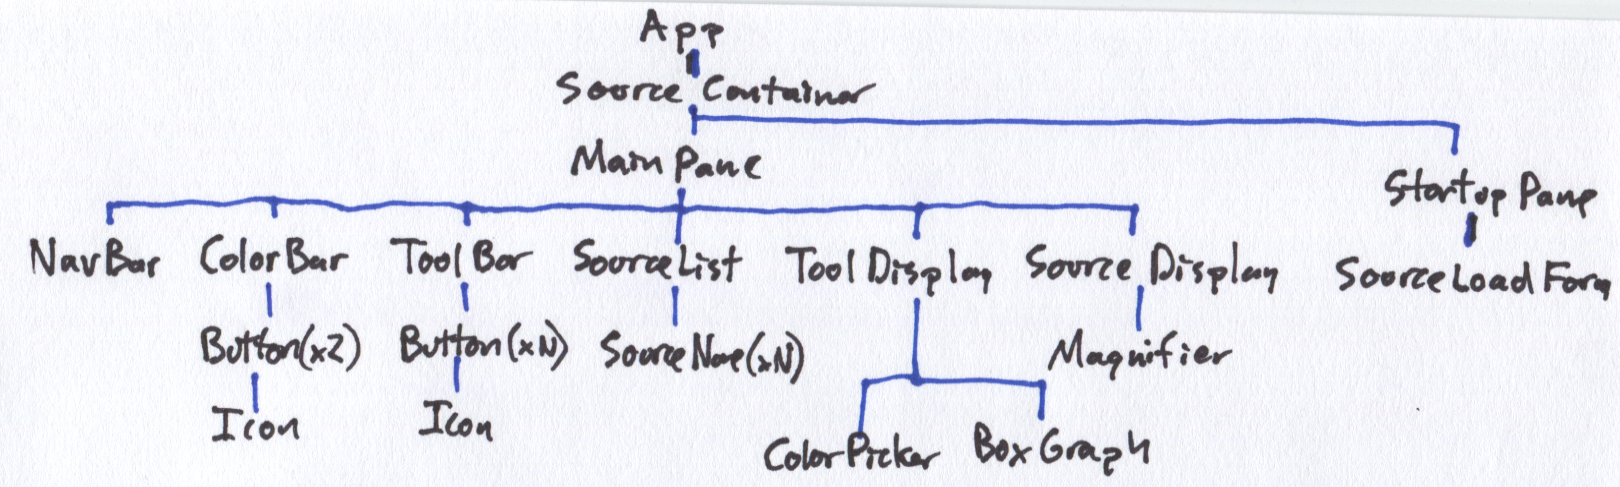 App
Source Container
Main Pane
Startup Pane
NavBar ColorBar ToolBar SourceList Tool Display Source Display SourceLoad Form
Button(x2) Button(xN) Source Name(xN) Magnifier
Icon Icon
ColorPicker BoxGraph